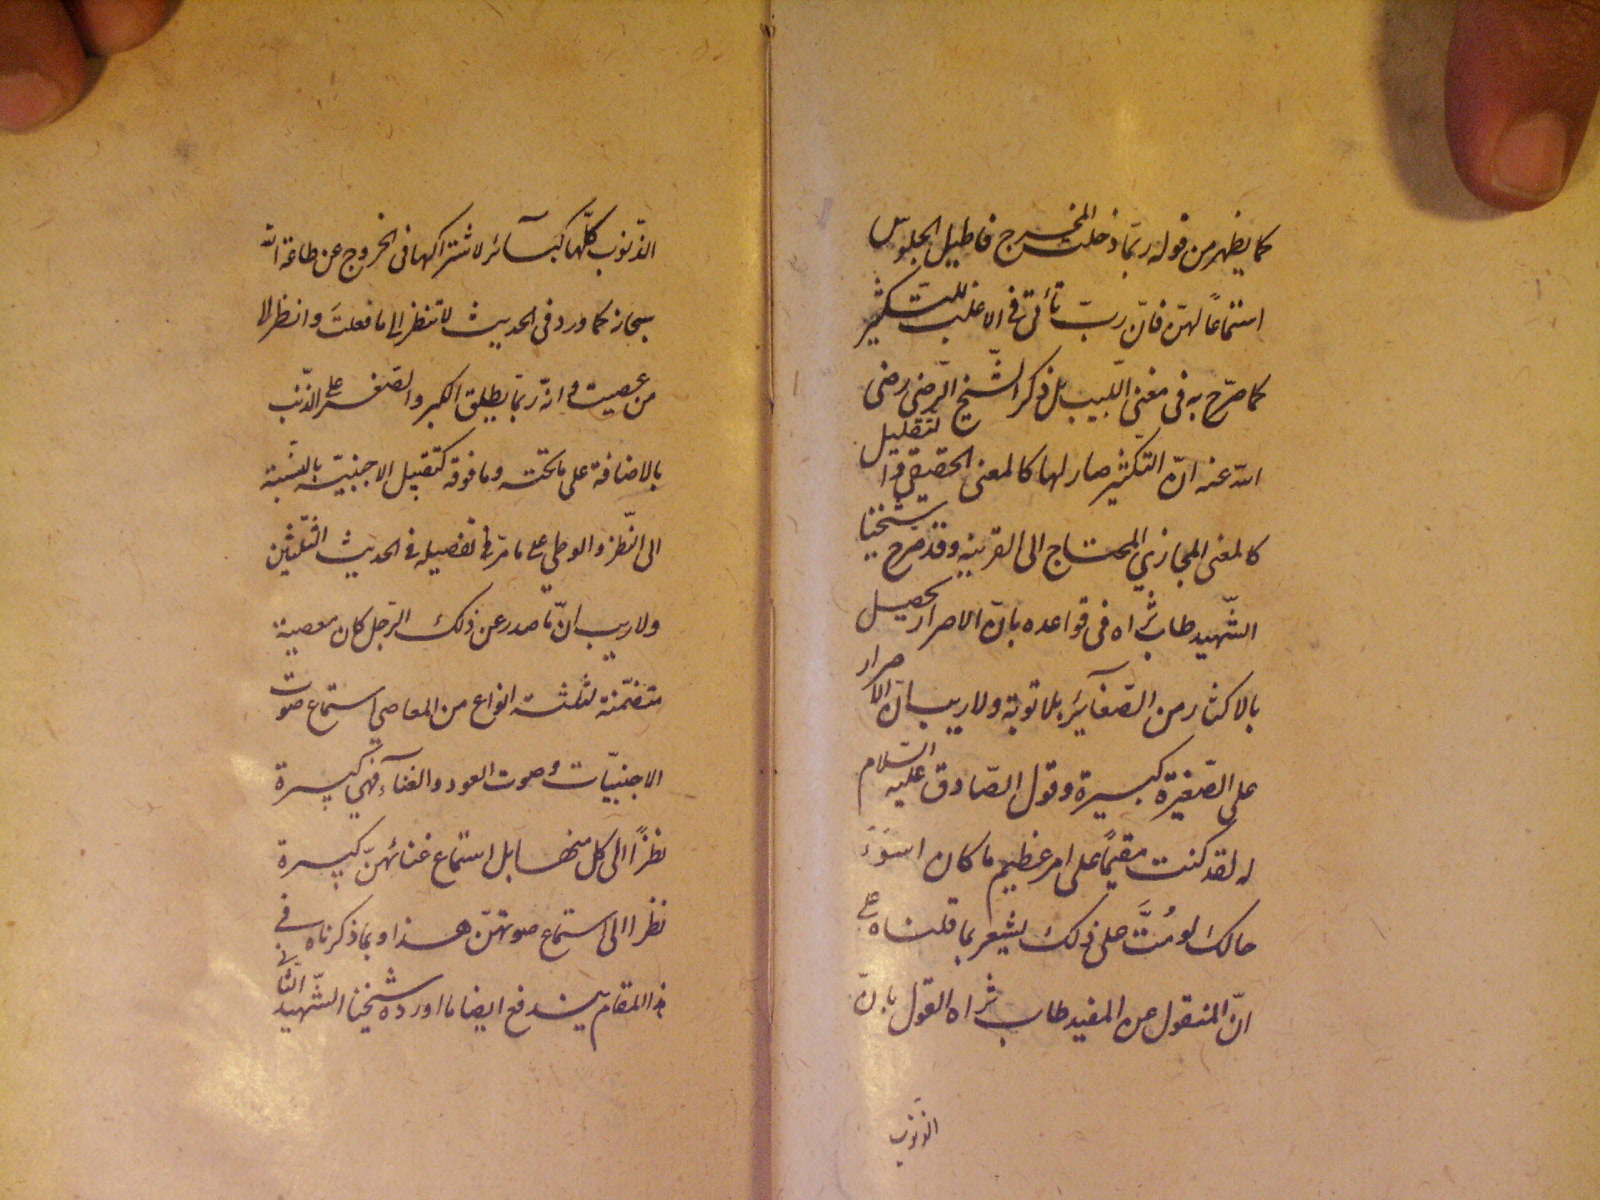 كما يظهر من قوله ربّما دخلت المخرج فاطيل الجلوس
استماعاً لهنّ فانّ ربّ تأتى فى الاغلب للتّكثير
كما صرّح به فى مغنى اللّبيب بل ذكر الشّيخ الرّضى رضى
الله عنه انّ التّكثير صار لها كالمعنى الحقيقى والتّقليل
كالمعنى المجازي المحتاج الى القرينه وقد صرح شيخنا
الشّهيد طاب ثراه فى قواعده بانّ الاصرار يحصل
بالاكثار من الصّغآئر بلا توبة ولا ريب انّ الاصرار
على الصّغيرة كبيرة وقول الصّادق عليه السّلام
له لقد كنت مقيماً على امر عظيم ما كان اسوَءَ
حالك لو مُتَّ على ذلك يشعر بما قلناه على
انّ المنقول عن المفيد طاب ثراه القول بانّ
الذّنوب
الذّنوب كلّها كبآئر لاشتراكها فى الخروج عن طاعة الله
سبحانه كما ورد فى الحديث لا تنظر الى ما فعلتَ وانظر لا
من عصيت وانّه ربّما يطلق الكبر والصّغر على الذّنب
بالاضافة على ما تحته وما فوقه كتقبيل الاجنبيّة بالنّسبة
الى النّظر والوطى على ما مرّ فى تفصيله فى الحديث الثّلثين
ولا ريب انّ ما صدر عن ذلك الرّجل كان معصية
متضمّنة لثلثة انواع من المعاصي استماع صوت
الاجنبيّات وصوت العود والغنآء فهى كبيرة
نظرًا الى كل منها بل استماع غنائهنّ كبيرة
نظرا الى استماع صوتهنّ هذا وبما ذكرناه في
هذا المقام يندفع ايضا ما اورده شيخنا الشّهيد الثّانى